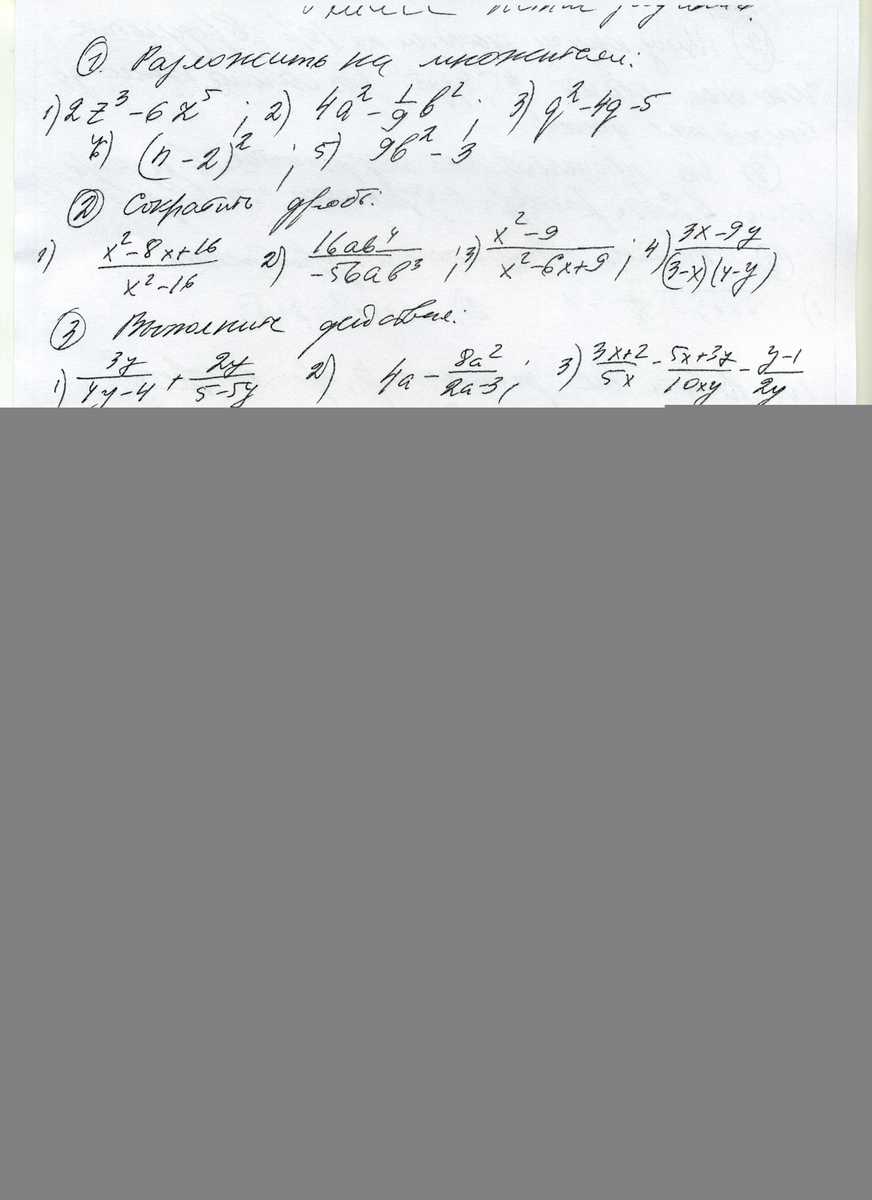 ① Разложить на множители:
1) 2z³ - 6z⁵ ; 2) 4a² - 1/9 b² ; 3) q² - 4q - 5
4) (n - 2)² ; 5) 9b² - 3
② Сократить дробь:
1) (x² - 8x + 16)/(x² - 16) 2) 16ab⁴/(-56ab³) ; 3) (x² - 9)/(x² - 6x + 9) ; 4) (3x - 9y)/((3-x)(4-y))
③ Выполнить действия:
1) 3y/(4y - 4) + 2y/(5 - 5y) 2) 4a - 8a²/(2a - 3) ; 3) (3x + 2)/5x - (5x + 3y)/10xy - (y - 1)/2y